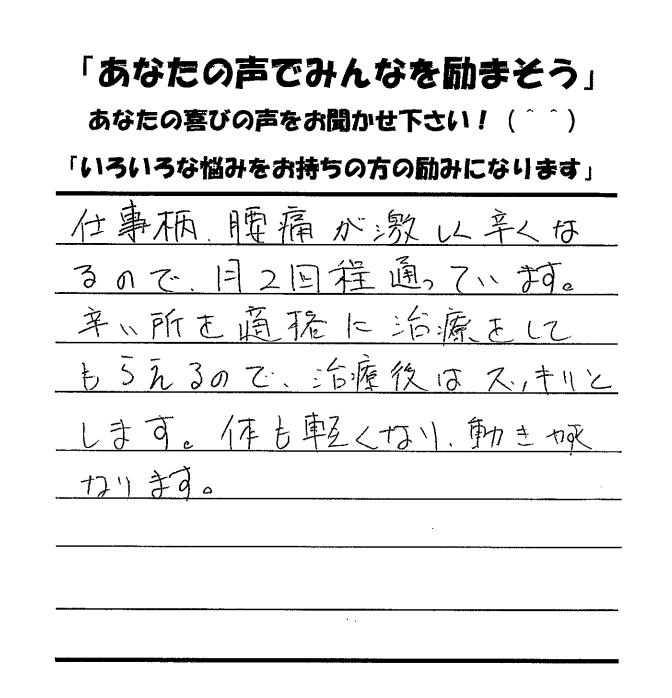 「あなたの声でみんなを励まそう」
あなたの喜びの声をお聞かせ下さい！（＾＾）
「いろいろな悩みをお持ちの方の励みになります」
仕事柄、腰痛が激しく辛くな
るので、月2回程通っています。
辛い所を適格に治療をして
もらえるので、治療後はスッキリと
します。体も軽くなり、動きやすく
なります。